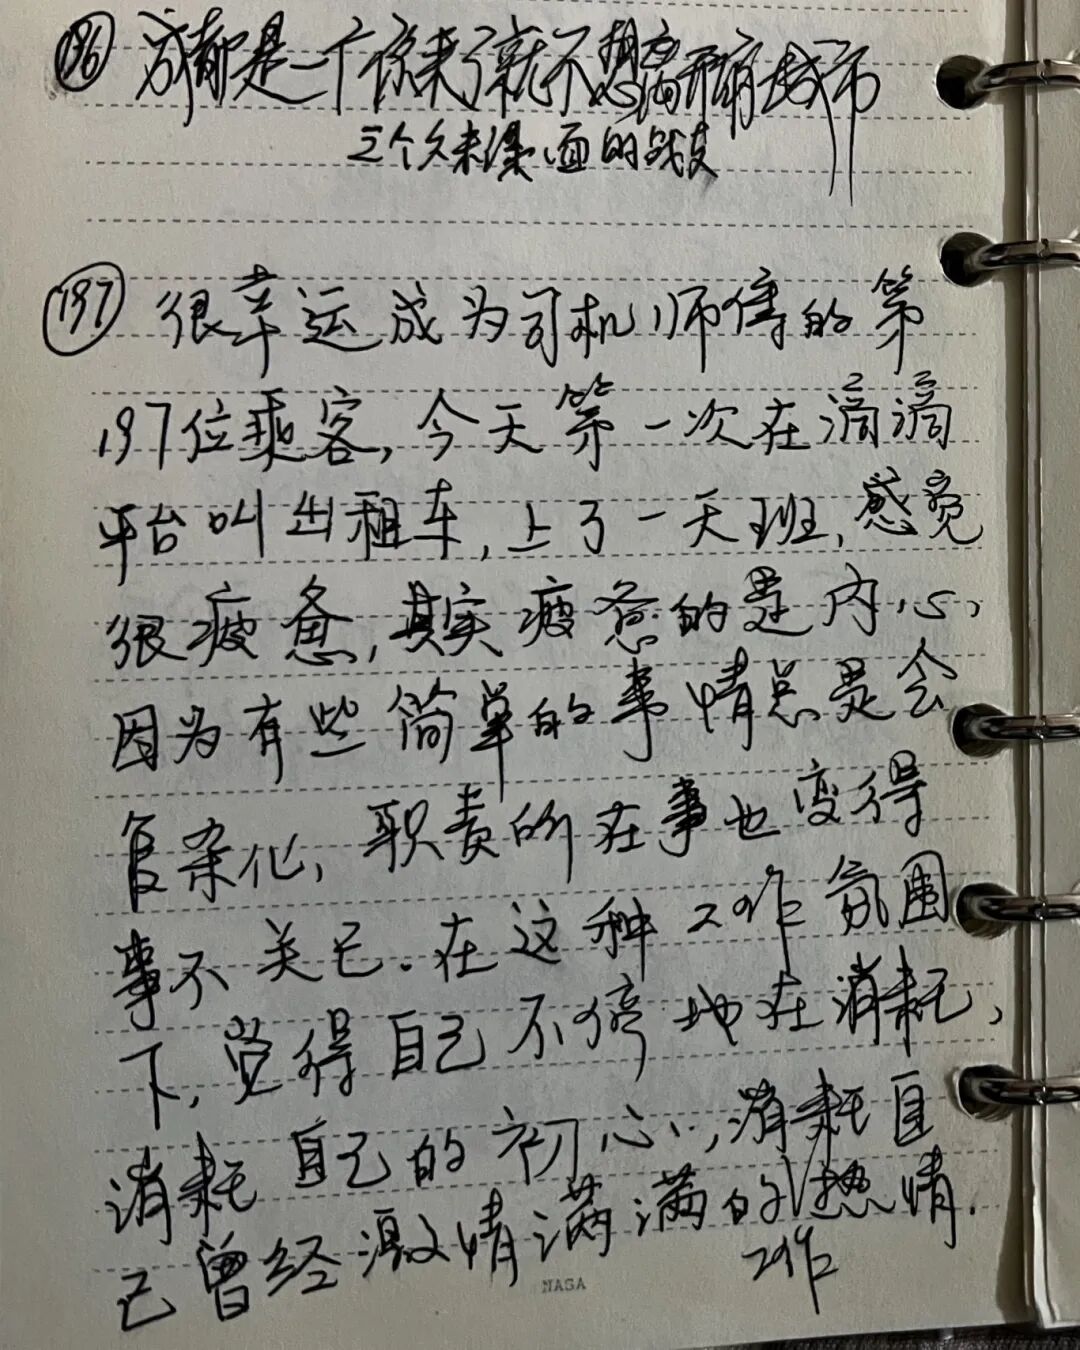 196 成都是一个你来了就不想离开的城市
三个久未谋面的战友
197 很幸运成为司机师傅的第
197位乘客,今天第一次在滴滴
平台叫出租车,上了一天班,感觉
很疲惫,其实疲惫的是内心,
因为有些简单的事情总是会
复杂化,职责所在事也变得
事不关己.在这种工作氛围
下,觉得自己不停地在消耗,
消耗自己的初心,消耗自
己曾经激情满满的√热情.
工作
NASA